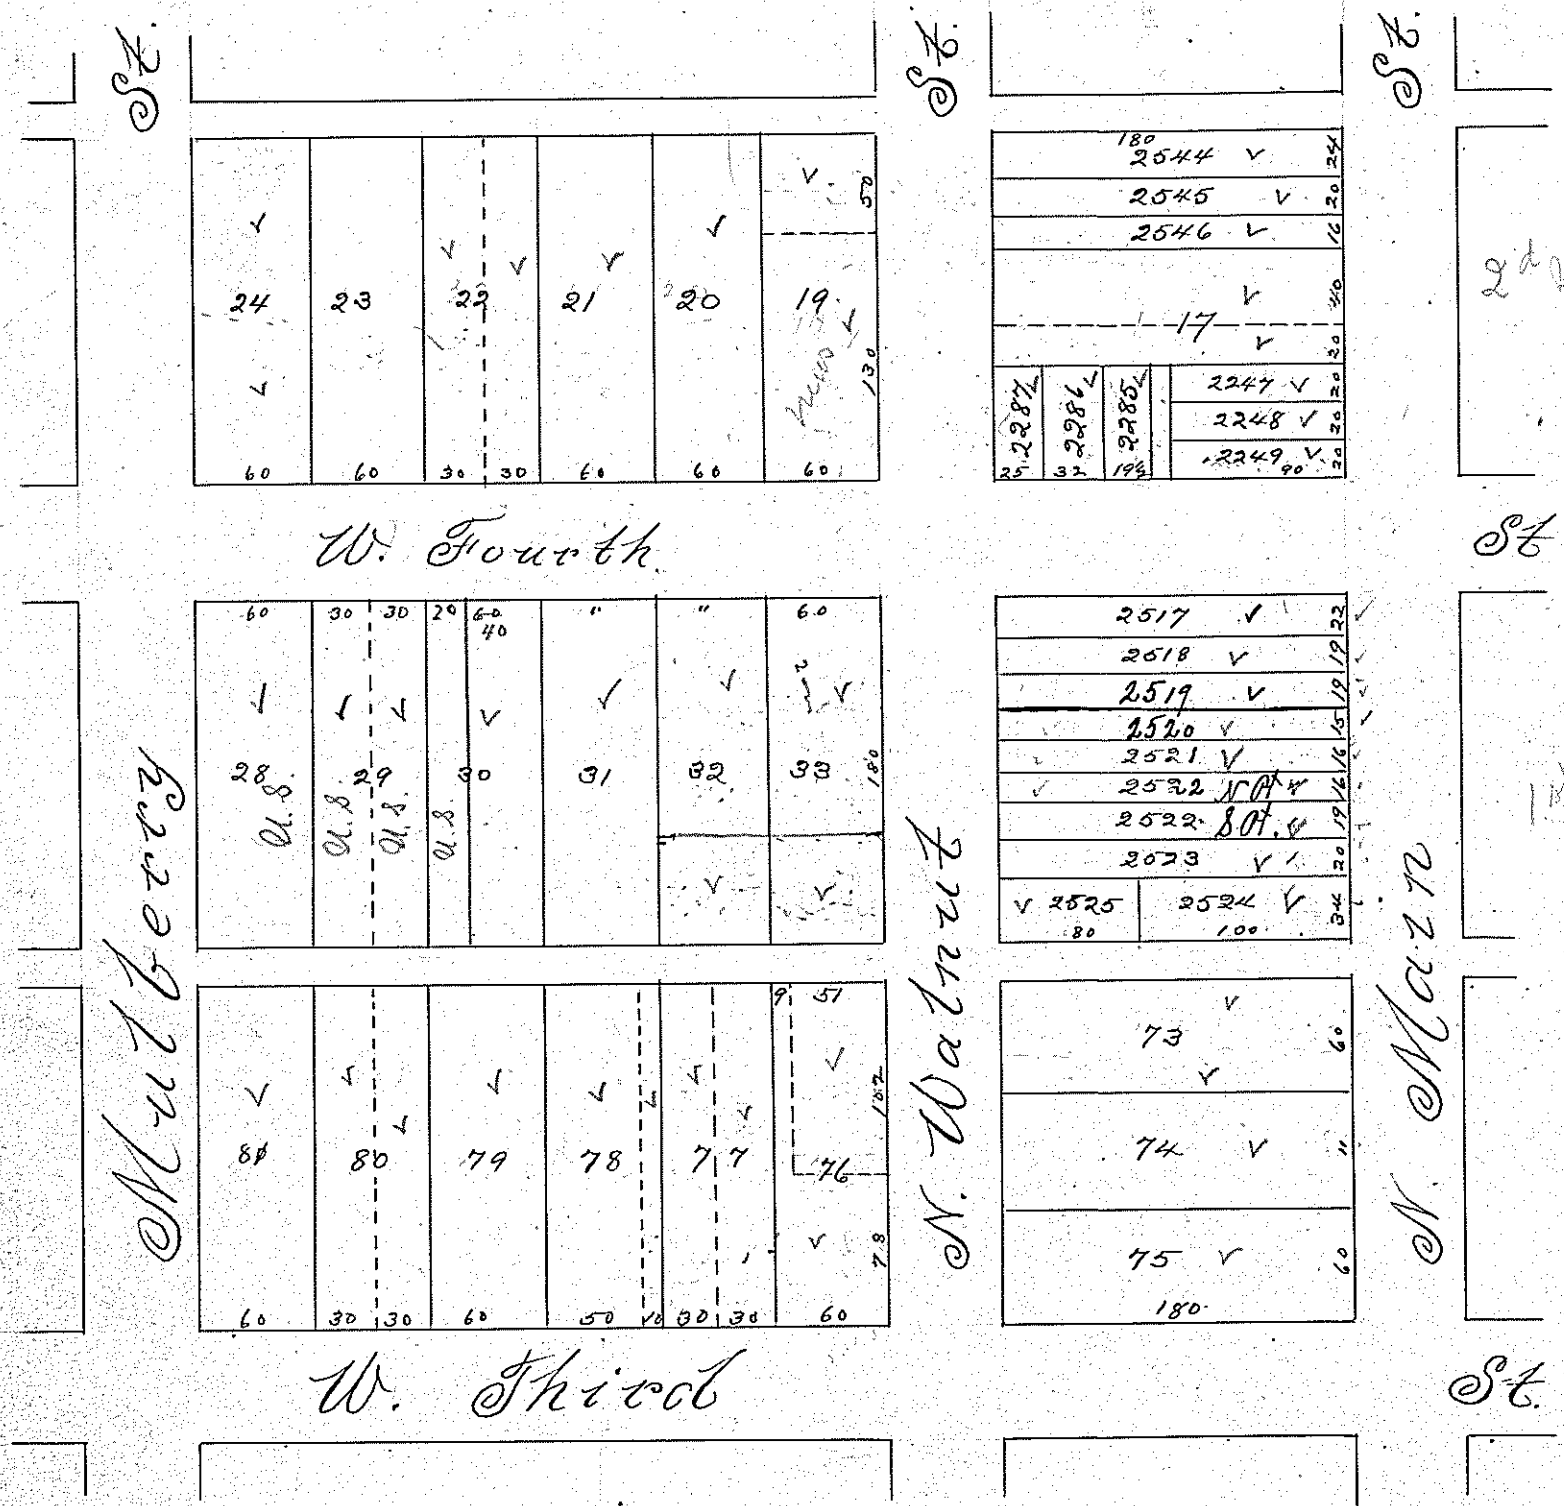 St.
St.
St.
24
23
22
21
20
19
50
130
60
60
30
30
60
60
60
180
2544
24
2545
20
2546
16
40
17
20
2287
2286
2285
25
32
19½
2247
20
2248
20
2249
20
90
2d
W. Fourth
St
60
30
30
20
60
40
"
"
60
28
29
30
31
32
33
180
U.S.
U.S.
U.S.
U.S
2517
22
2518
19
2519
19
2520
15
2521
16
2522 N Pt
16
2522 S Pt.
19
2523
20
2525
80
2524
100
34
Mulberry
N. Walnut
N. Main
81
80
79
78
77
76
9
51
102
78
60
30
30
60
50
10
30
30
60
73
60
74
"
75
60
180
W. Third
St.